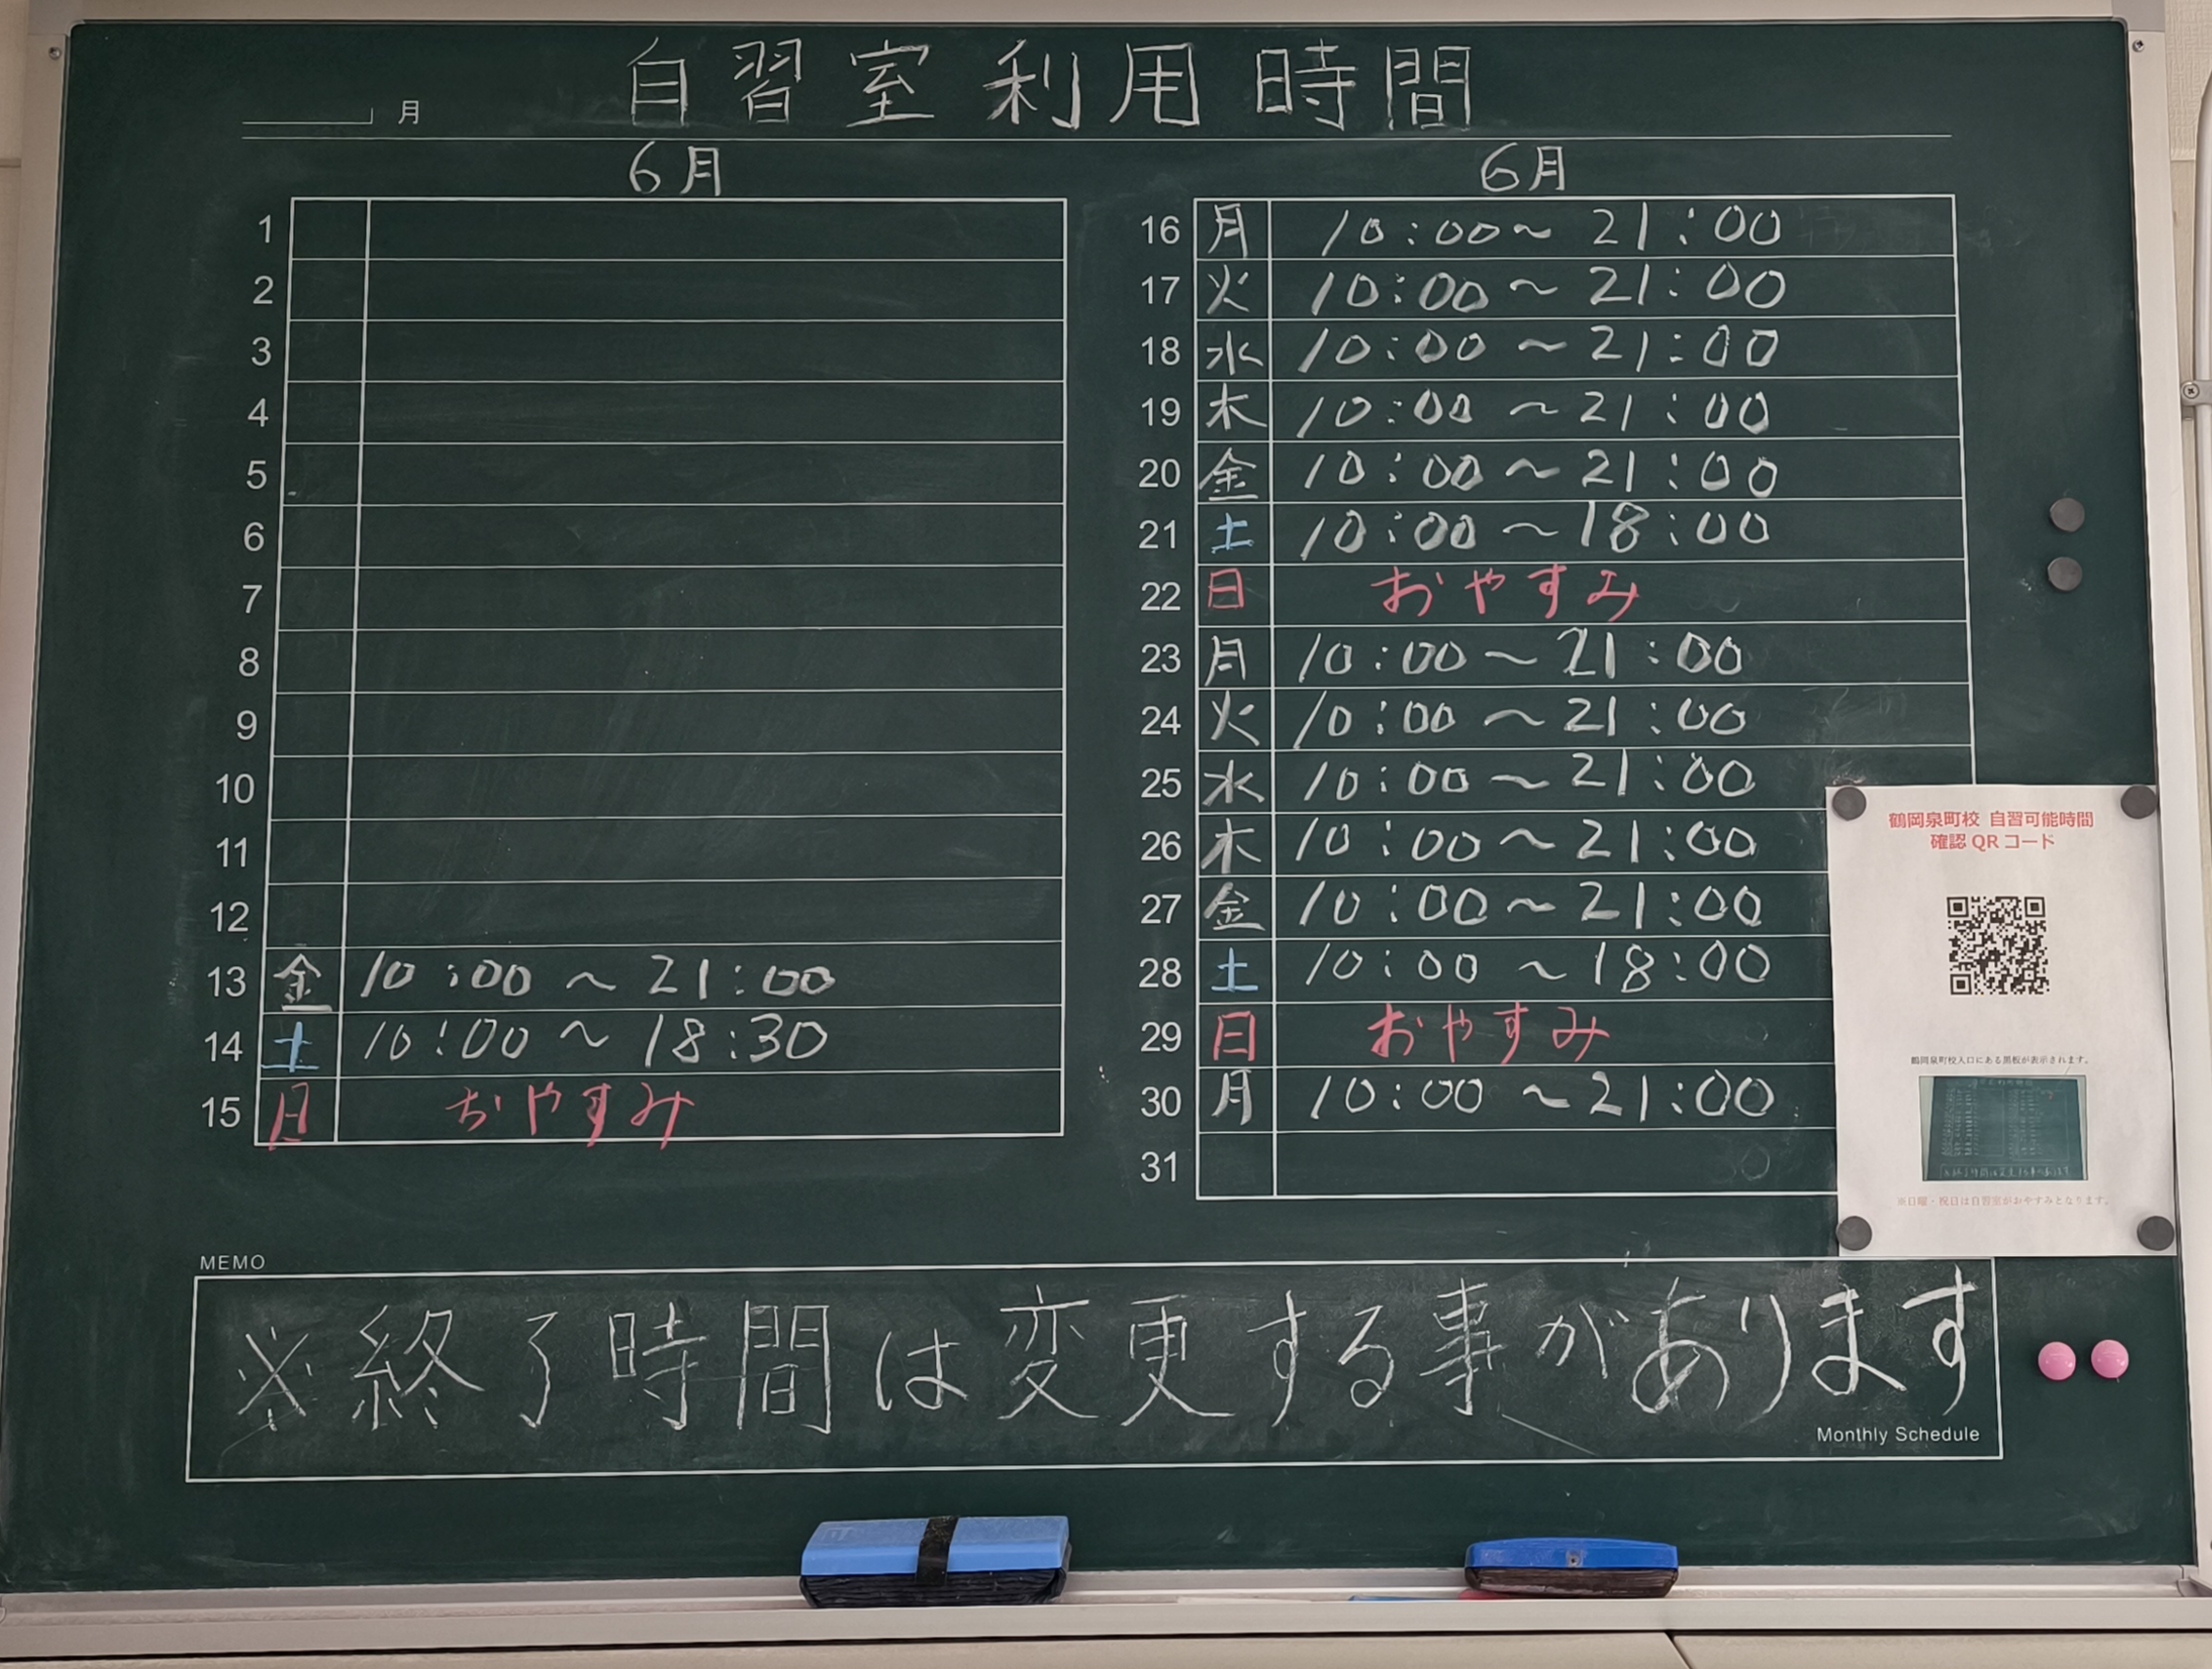 自習室利用時間
月
6月
1
2
3
4
5
6
7
8
9
10
11
12
13 金 10:00～21:00
14 土 10:00～18:30
15 日 おやすみ
6月
16 月 10:00～21:00
17 火 10:00～21:00
18 水 10:00～21:00
19 木 10:00～21:00
20 金 10:00～21:00
21 土 10:00～18:00
22 日 おやすみ
23 月 10:00～21:00
24 火 10:00～21:00
25 水 10:00～21:00
26 木 10:00～21:00
27 金 10:00～21:00
28 土 10:00～18:00
29 日 おやすみ
30 月 10:00～21:00
31
鶴岡泉町校 自習可能時間
確認QRコード
鶴岡泉町校入口にある黒板が表示されます。
※日曜・祝日は自習室がおやすみとなります。
MEMO
※終了時間は変更する事があります
Monthly Schedule